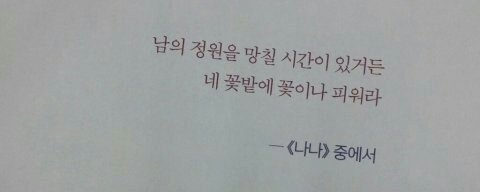 남의 정원을 망칠 시간이 있거든
네 꽃밭에 꽃이나 피워라
―《나나》 중에서